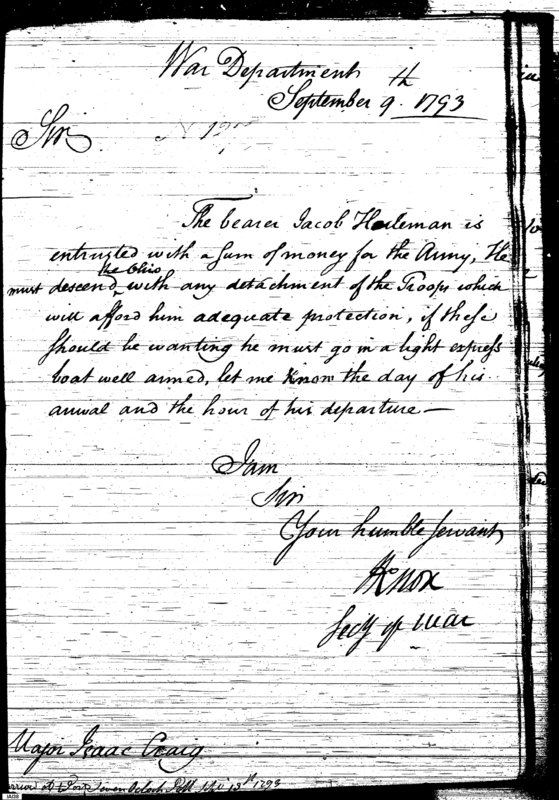 War Department
September 9th. 1793
Sir
The bearer Jacob Haleman is
entrusted with a sum of money for the Army, He
the Ohio
must descend, with any detachment of the Troops which
will afford him adequate protection, if these
should be wanting he must go in a light express
boat well armed, let me know the day of his
arival and the hour of his departure —
I am
Sir
Your humble servant
HKnox
Secy of war
Major Isaac Craig
arrived at
Seven oClock
13th 1793